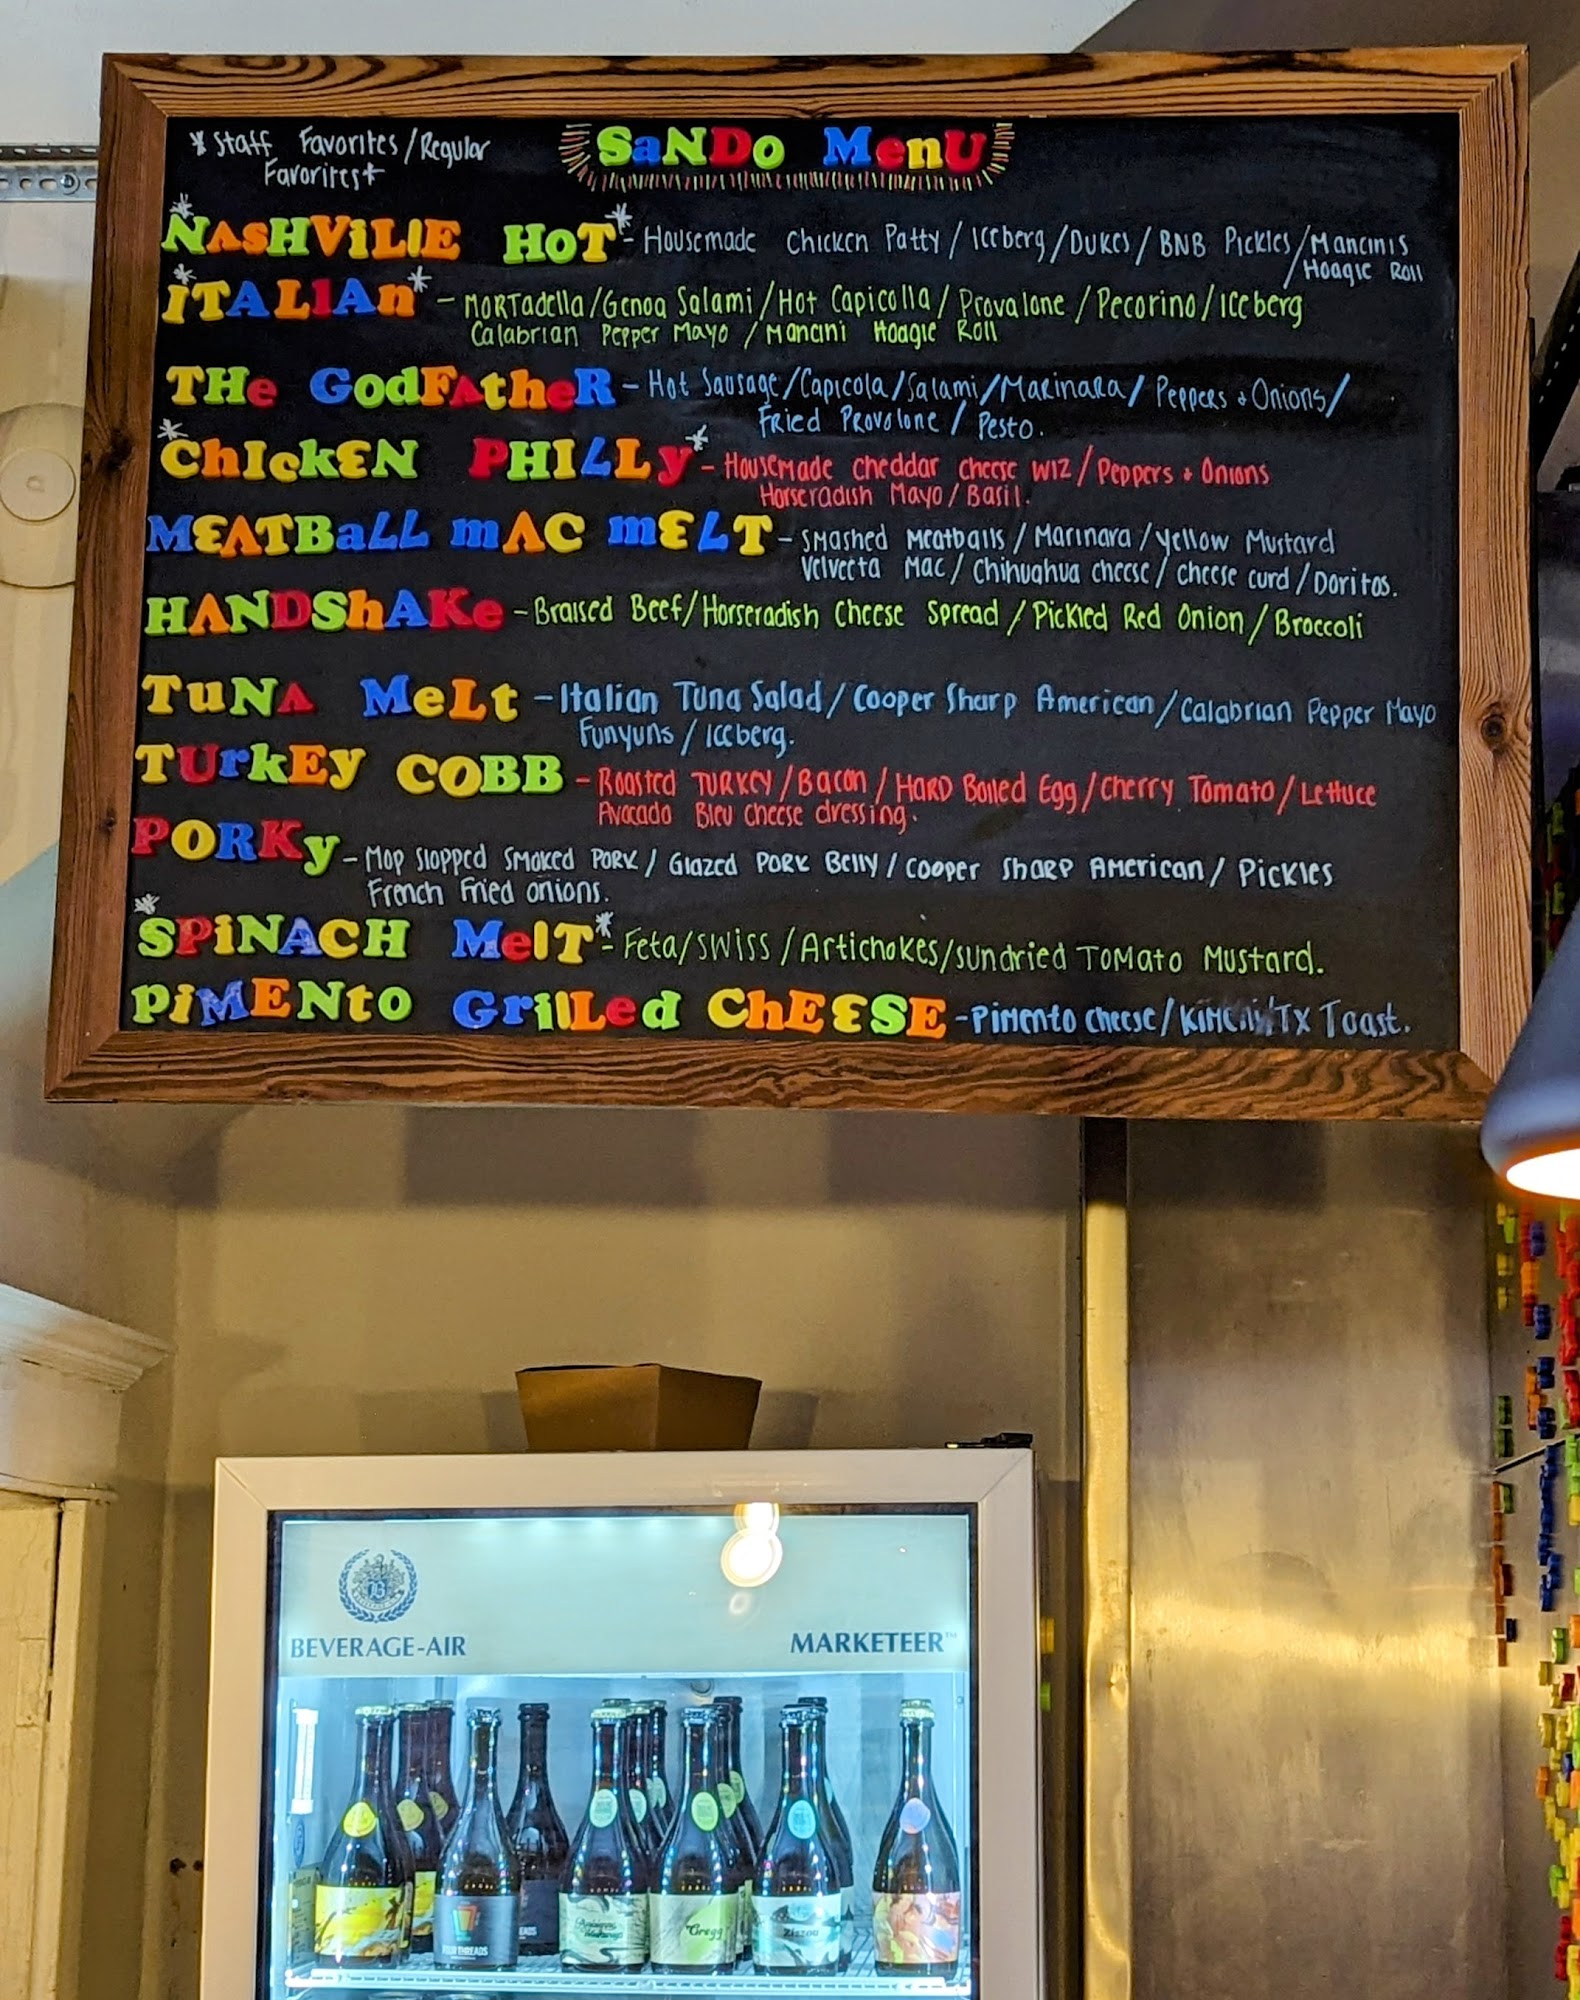 *Staff Favorites/Regular
Favorites*
SaNDo MenU
*NASHViLlE HoT* - Housemade Chicken Patty / Iceberg / Dukes / BNB Pickles / Mancinis
Hoagie Roll
*iTALIAn* - Mortadella / Genoa Salami / Hot Capicolla / Provalone / Pecorino / Iceberg
Calabrian Pepper Mayo / Mancini Hoagie Roll
THe GodFAtheR - Hot Sausage / Capicola / Salami / Marinara / Peppers & Onions /
Fried Provolone / Pesto.
*ChIckEN PHILLy* - Housemade cheddar cheese wiz / Peppers & Onions
Horseradish Mayo / Basil.
MEATBaLL mAC mELT - Smashed Meatballs / Marinara / Yellow Mustard
Velveeta Mac / Chihuahua cheese / cheese curd / Doritos.
HANDShAKe - Braised Beef / Horseradish Cheese Spread / Pickled Red Onion / Broccoli
TuNA MeLt - Italian Tuna Salad / Cooper Sharp American / Calabrian Pepper Mayo
Funyuns / Iceberg.
TUrkEy COBB - Roasted Turkey / Bacon / Hard Boiled Egg / Cherry Tomato / Lettuce
Avacado Bleu Cheese dressing.
PORKy - Mop Slopped Smoked Pork / Glazed Pork Belly / Cooper Sharp American / Pickles
French Fried onions.
*SPiNACH MelT* - Feta / Swiss / Artichokes / sundried Tomato Mustard.
PiMENto GrillLed ChEESE - Pimento Cheese / Kimchi / TX Toast.
BEVERAGE-AIR
MARKETEER™
FOUR THREADS
Gregg
Zizzou